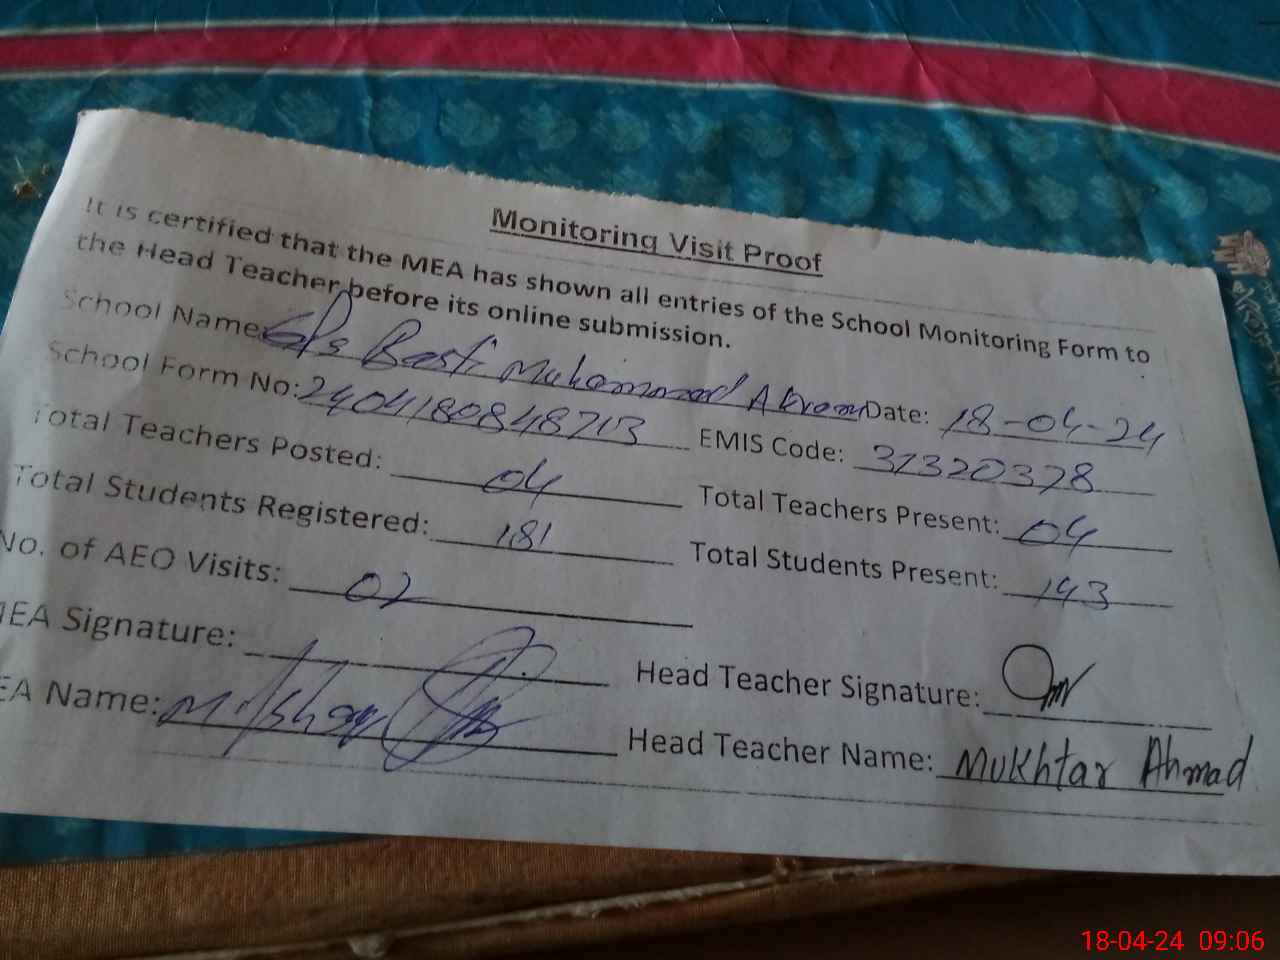 Monitoring Visit Proof
It is certified that the MEA has shown all entries of the School Monitoring Form to
the Head Teacher before its online submission.
School Name: GPS Basti Muhammad Akram Date: 18-04-24
School Form No: 2404180848713 EMIS Code: 31320378
Total Teachers Posted: 04 Total Teachers Present: 04
Total Students Registered: 181 Total Students Present: 143
No. of AEO Visits: 02
MEA Signature: Head Teacher Signature:
EA Name: Head Teacher Name: Mukhtar Ahmad
18-04-24 09:06